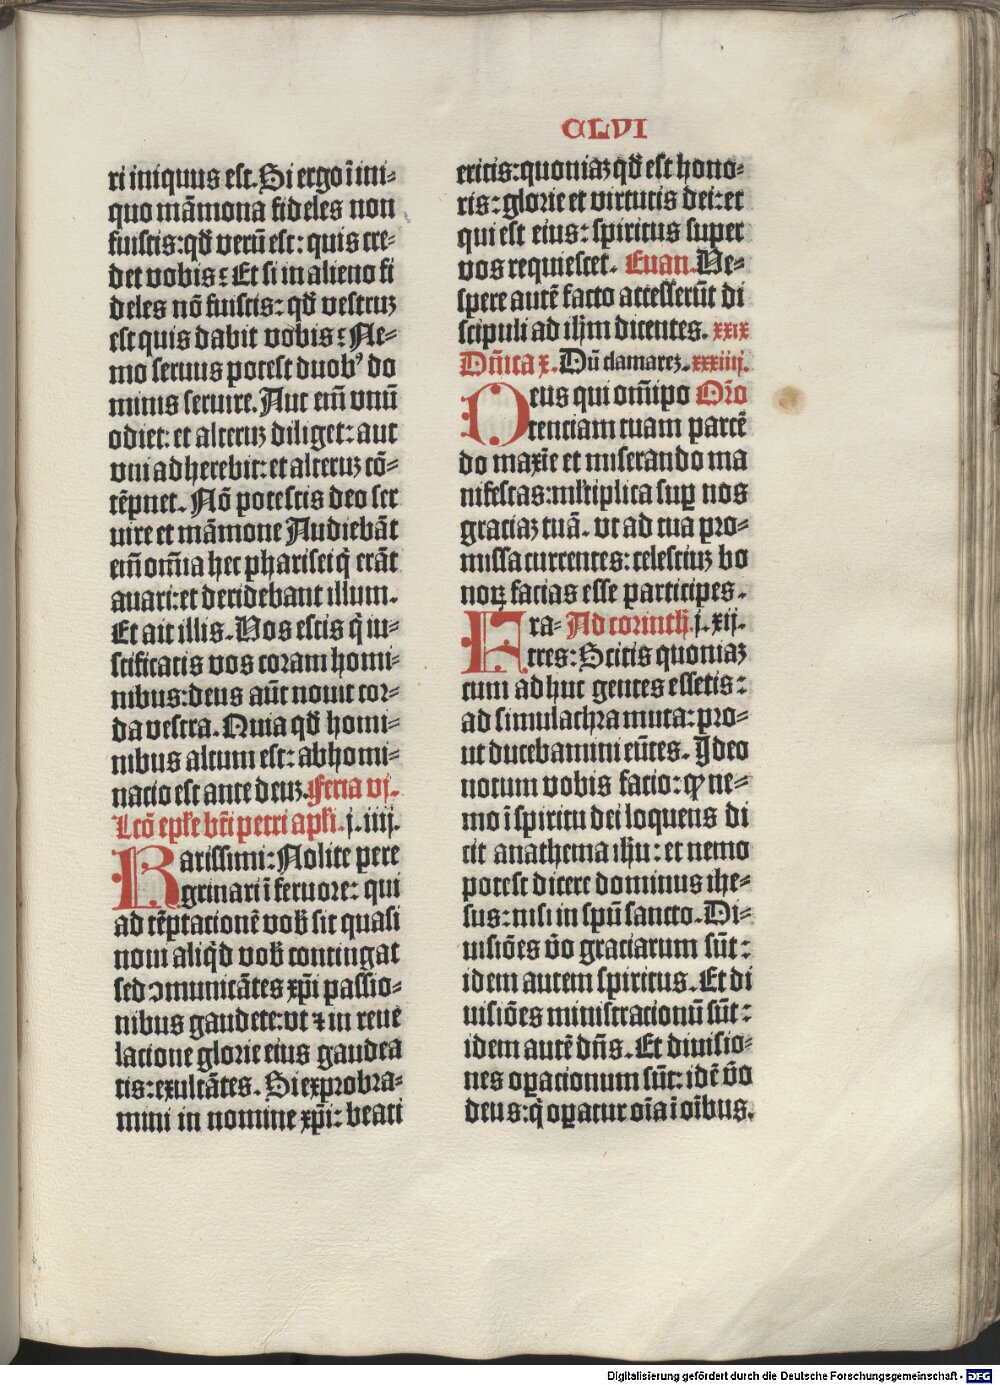 CLVI
ri iniquus est. Si ergo ī ini-
quo māmona fideles non
fuistis: qd̄ verū est: quis cre-
det vobis? Et si in alieno fi
deles nō fuistis: qd̄ vestruꝫ
est quis dabit vobis? Ne-
mo seruus potest duobꝰ do
minis seruire. Aut em̄ vnū
odiet: et alteruꝫ diliget: aut
vni adherebit: et alteruꝫ cō-
tēpnet. Nō potestis deo ser
uire et māmone Audiebāt
em̄ om̄ia hec pharisei q̄ erāt
auari: et deridebant illum.
Et ait illis. Vos estis q̄ iu-
stificatis vos coram homi-
nibus: deus aūt nouit cor-
da vestra. Quia qd̄ homi-
nibus altum est: abhomi-
nacio est ante deuꝫ. Feria vj.
Lcō epl̄e bt̄i petri apl̄i. j. iiij.
Karissimi: Nolite pere
grinari ī feruore: qui
ad tēptacionē vob̄ sit quasi
noui aliq̄d vob̄ contingat
sed ꝯmunicātes xp̄i passio-
nibus gaudete: vt ⁊ in reue
lacione glorie eius gaudea
tis: exultātes. Si exprobra-
mini in nomine xp̄i: beati
eritis: quoniaꝫ qd̄ est hono-
ris: glorie et virtutis dei: et
qui est eius: spiritus super
vos requiescet. Euan. Ve-
spere autē facto accesserūt di
scipuli ad ih̄m dicentes. xxix
Dn̄ica x. Dū clamareꝫ. xxxiiij.
Deus qui om̄ipo Orō
tenciam tuam parcē
do maxīe et miserando ma
nifestas: ml̄tiplica suꝑ nos
graciaꝫ tuā. vt ad tua pro-
missa currentes: celestiuꝫ bo
noꝝ facias esse participes.
Fra- Ad corinth̄. j. xij.
tres: Scitis quoniaꝫ
cum adhuc gentes essetis:
ad simulachra muta: pro-
ut ducebamini eūtes. Ideo
notum vobis facio: ꝙ ne-
mo ī spiritu dei loquens di
cit anathema ih̄u: et nemo
potest dicere dominus ihe-
sus: nisi in spū sancto. Di-
uisiōes v̄o graciarum sūt:
idem autem spiritus. Et di
uisiōes ministracionū sūt:
idem autē dn̄s. Et diuisio-
nes oꝑacionum sūt: idē v̄o
deus: q̄ oꝑatur oīa ī oībus.
Digitalisierung gefördert durch die Deutsche Forschungsgemeinschaft - DFG